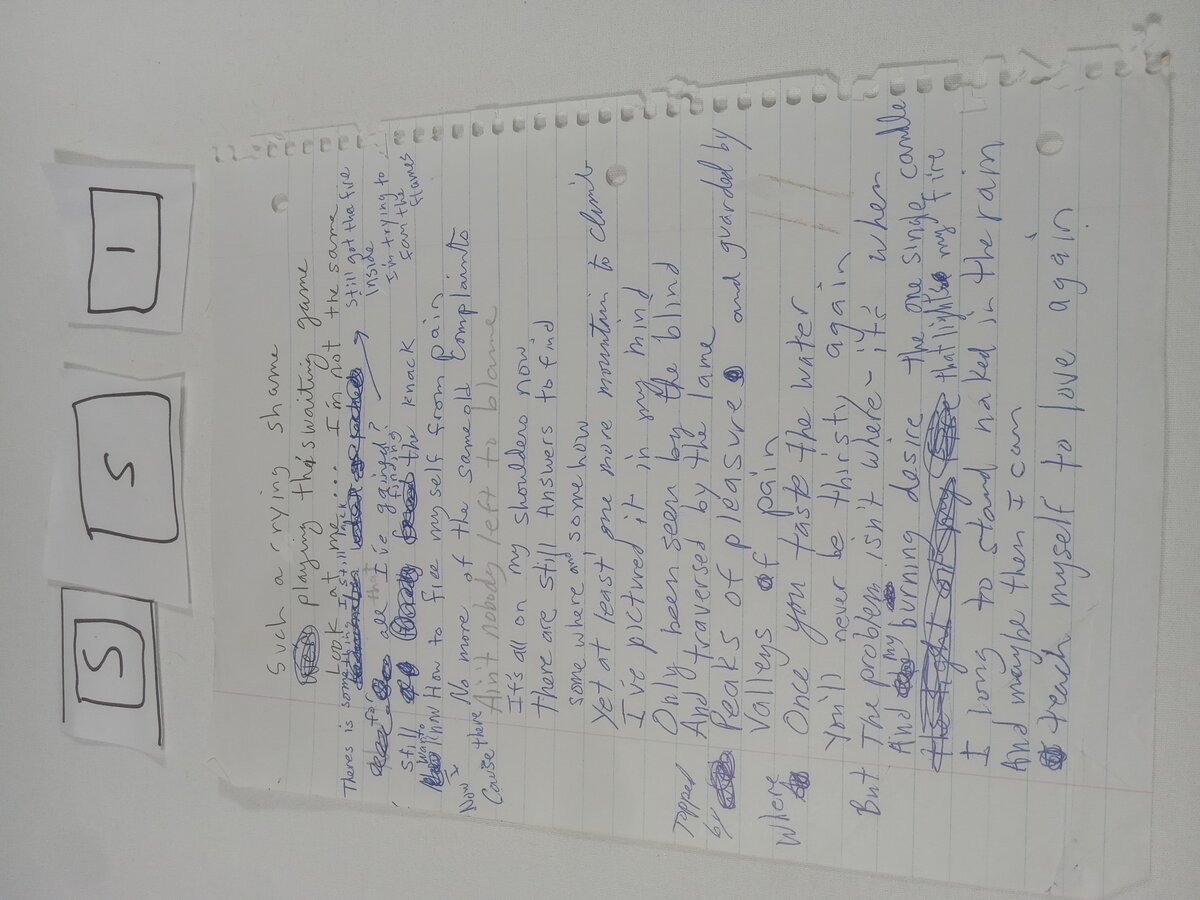 S
S
1
Such a crying shame
playing this waiting game
Look at me.... I'm not the same
Theres is something I still lack
Still got the fire
Inside
for all that I've gained?
I'm trying to
fan the
flames
Still finding the knack
want to
Know How to free myself from pain
Now No more of the same old Complaints
Cause there Ain't nobody left to blame
It's all on my shoulders now
There are still Answers to find
somewhere and somehow
Yet at least one more mountain to climb
I've pictured it in my mind
Only been seen by the blind
And traversed by the lame
Topped
by Peaks of pleasure and guarded by
Valleys of pain
Where Once you taste the water
You'll never be thirsty again
But The problem isn't where - it's when
And my burning desire the one single candle
that lights my fire
I long to stand naked in the rain
And maybe then I can
teach myself to love again